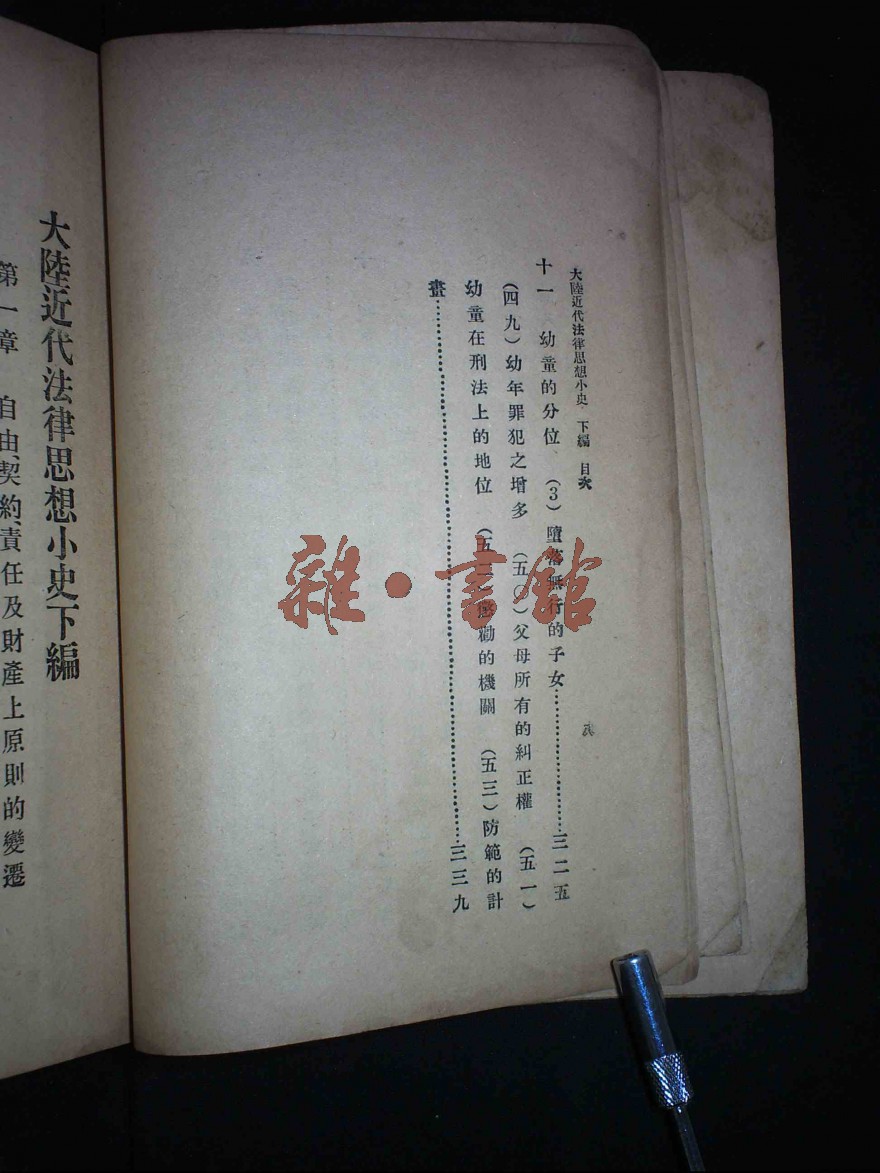 大陸近代法律思想小史 下編 目次
十一 幼童的分位 (3)墮落無行的子女……三二五
(四九)幼年罪犯之增多 (五〇)父母所有的糾正權 (五一)
幼童在刑法上的地位 (五二)懲勸的機關 (五三)防範的計
畫……三三九
大陸近代法律思想小史下編
第一章 自由、契約、責任及財產上原則的變遷
雜·書館